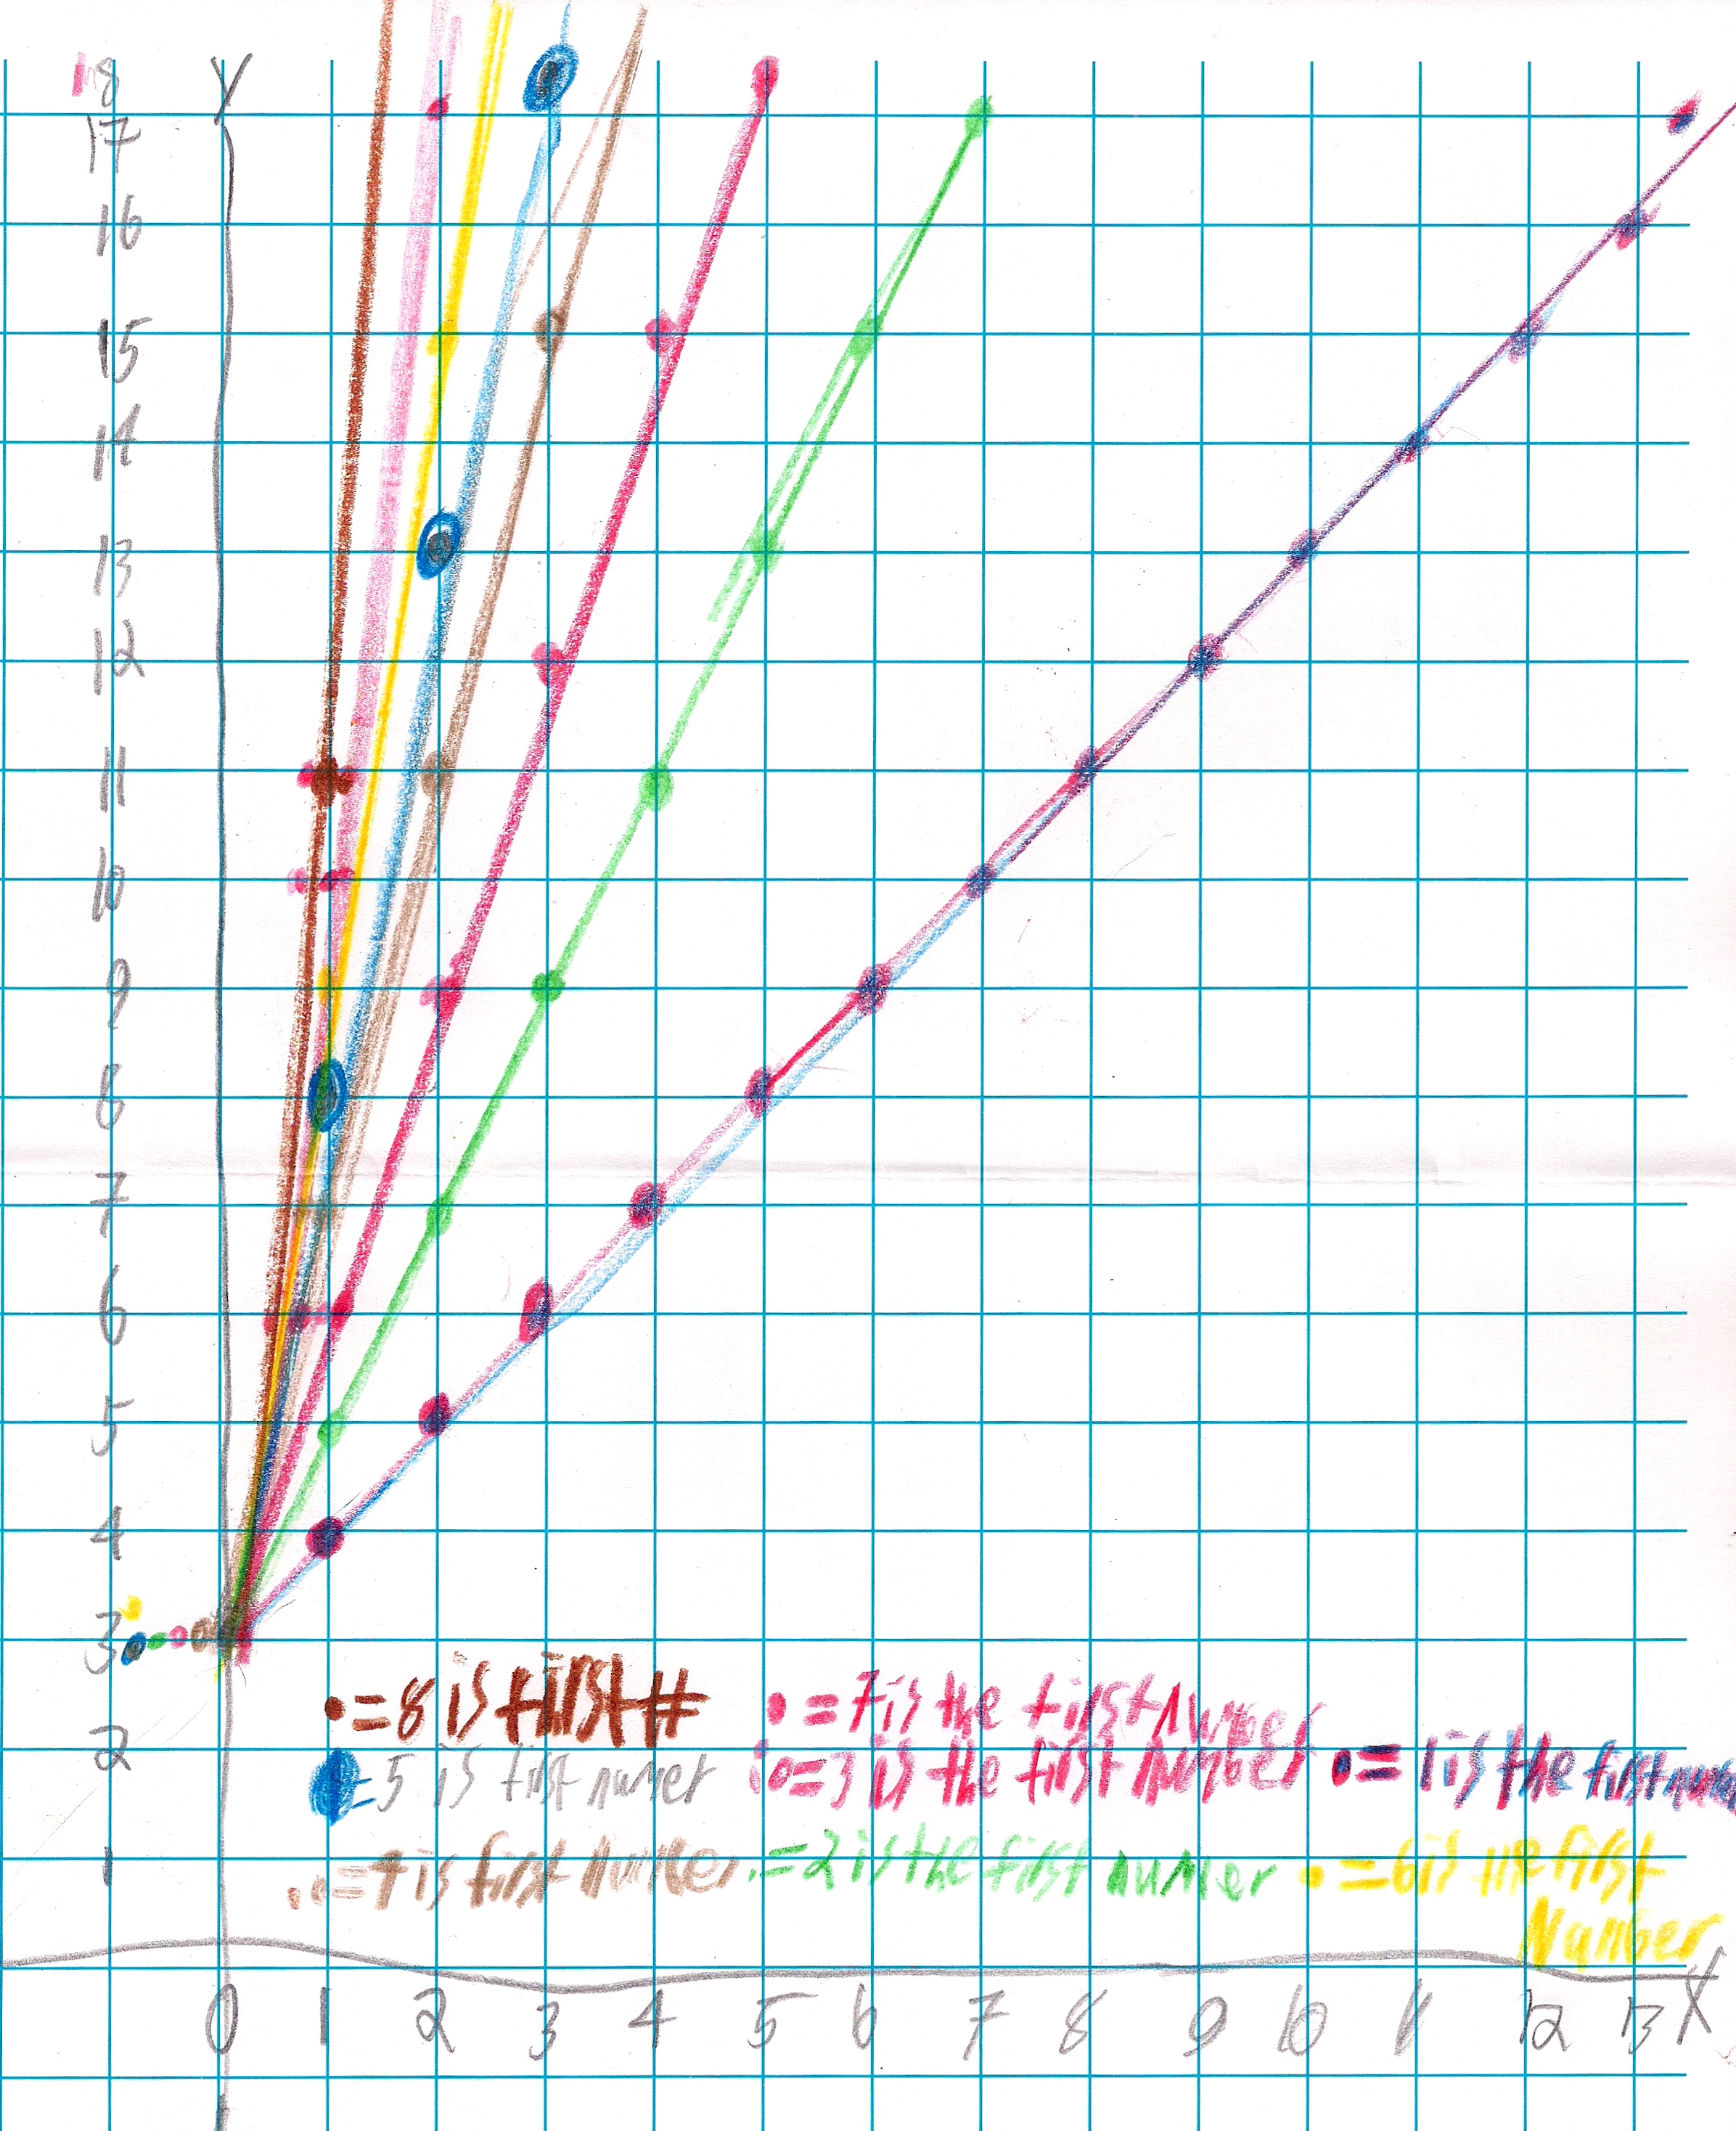 18 Y
17
16
15
14
13
12
11
10
9
8
7
6
5
4
3
•=8 is first # •=7 is the first number
2
=5 is first numer •=3 is the first number •=1 is the first
1
•=4 is first numer •=2 is the first numer •=6 is the first
Number
0 1 2 3 4 5 6 7 8 9 10 11 12 13 X